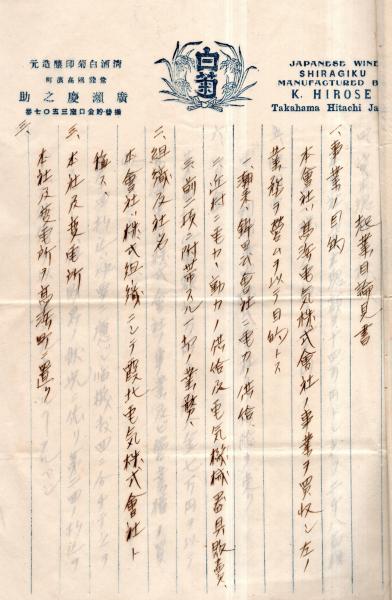 清酒白菊印釀造元
常陸國高濱町
廣瀨慶之助
振替貯金口座三五〇七番
白菊
JAPANESE WINE
SHIRAGIKU
MANUFACTURED B
K. HIROSE
Takahama Hitachi Ja
起業目論見書
一、事業ノ目的
本會社ハ高浜電気株式會社ノ事業ヲ買收シ左ノ
業務ヲ營ムヲ以テ目的トス
一、電気株式會社ニ電力ノ供給
二、近村ニ電力、動力ノ供給及電気機械器具販賣
三、前二項ニ附帯スル一切ノ業務
二、組織及社名
本會社ハ株式組織ニシテ霞北電気株式會社ト
稱ス
三、本社及発電所
本社及発電所ヲ高浜町ニ置ク